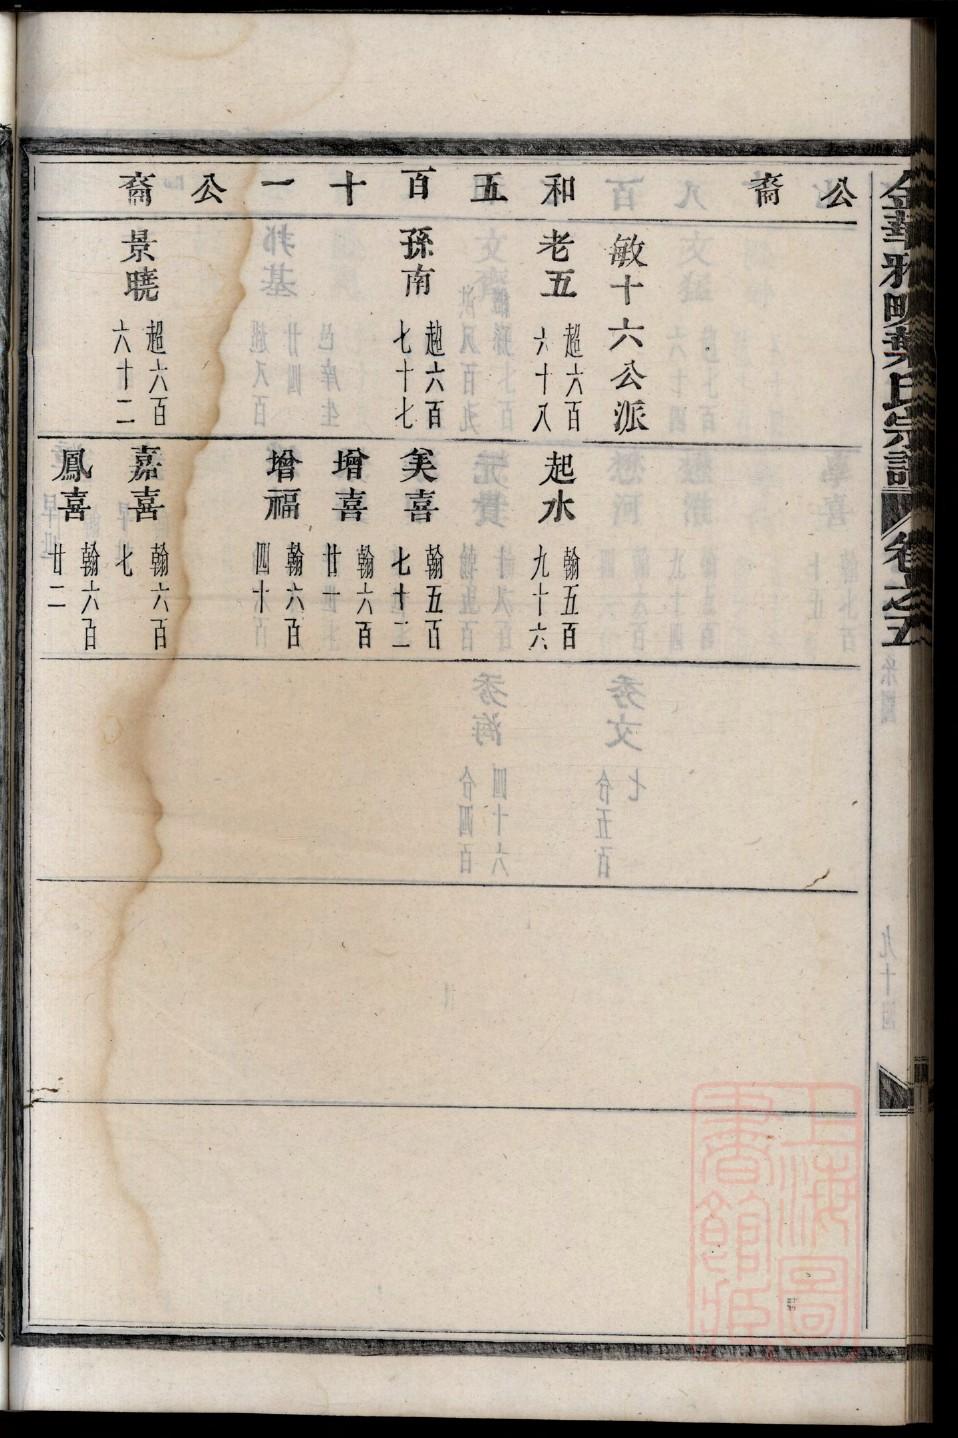 金華雅畈葉氏宗譜 卷之五
公裔 和五百十一公裔
敏十六公派
老五 趙六百六十八
孫南 趙六百七十七
景曉 趙六百六十二
起水 翰五百九十六
美喜 翰五百七十二
增喜 翰六百廿一
增福 翰六百四十
嘉喜 翰六百七
鳳喜 翰六百廿二
上海圖書館藏